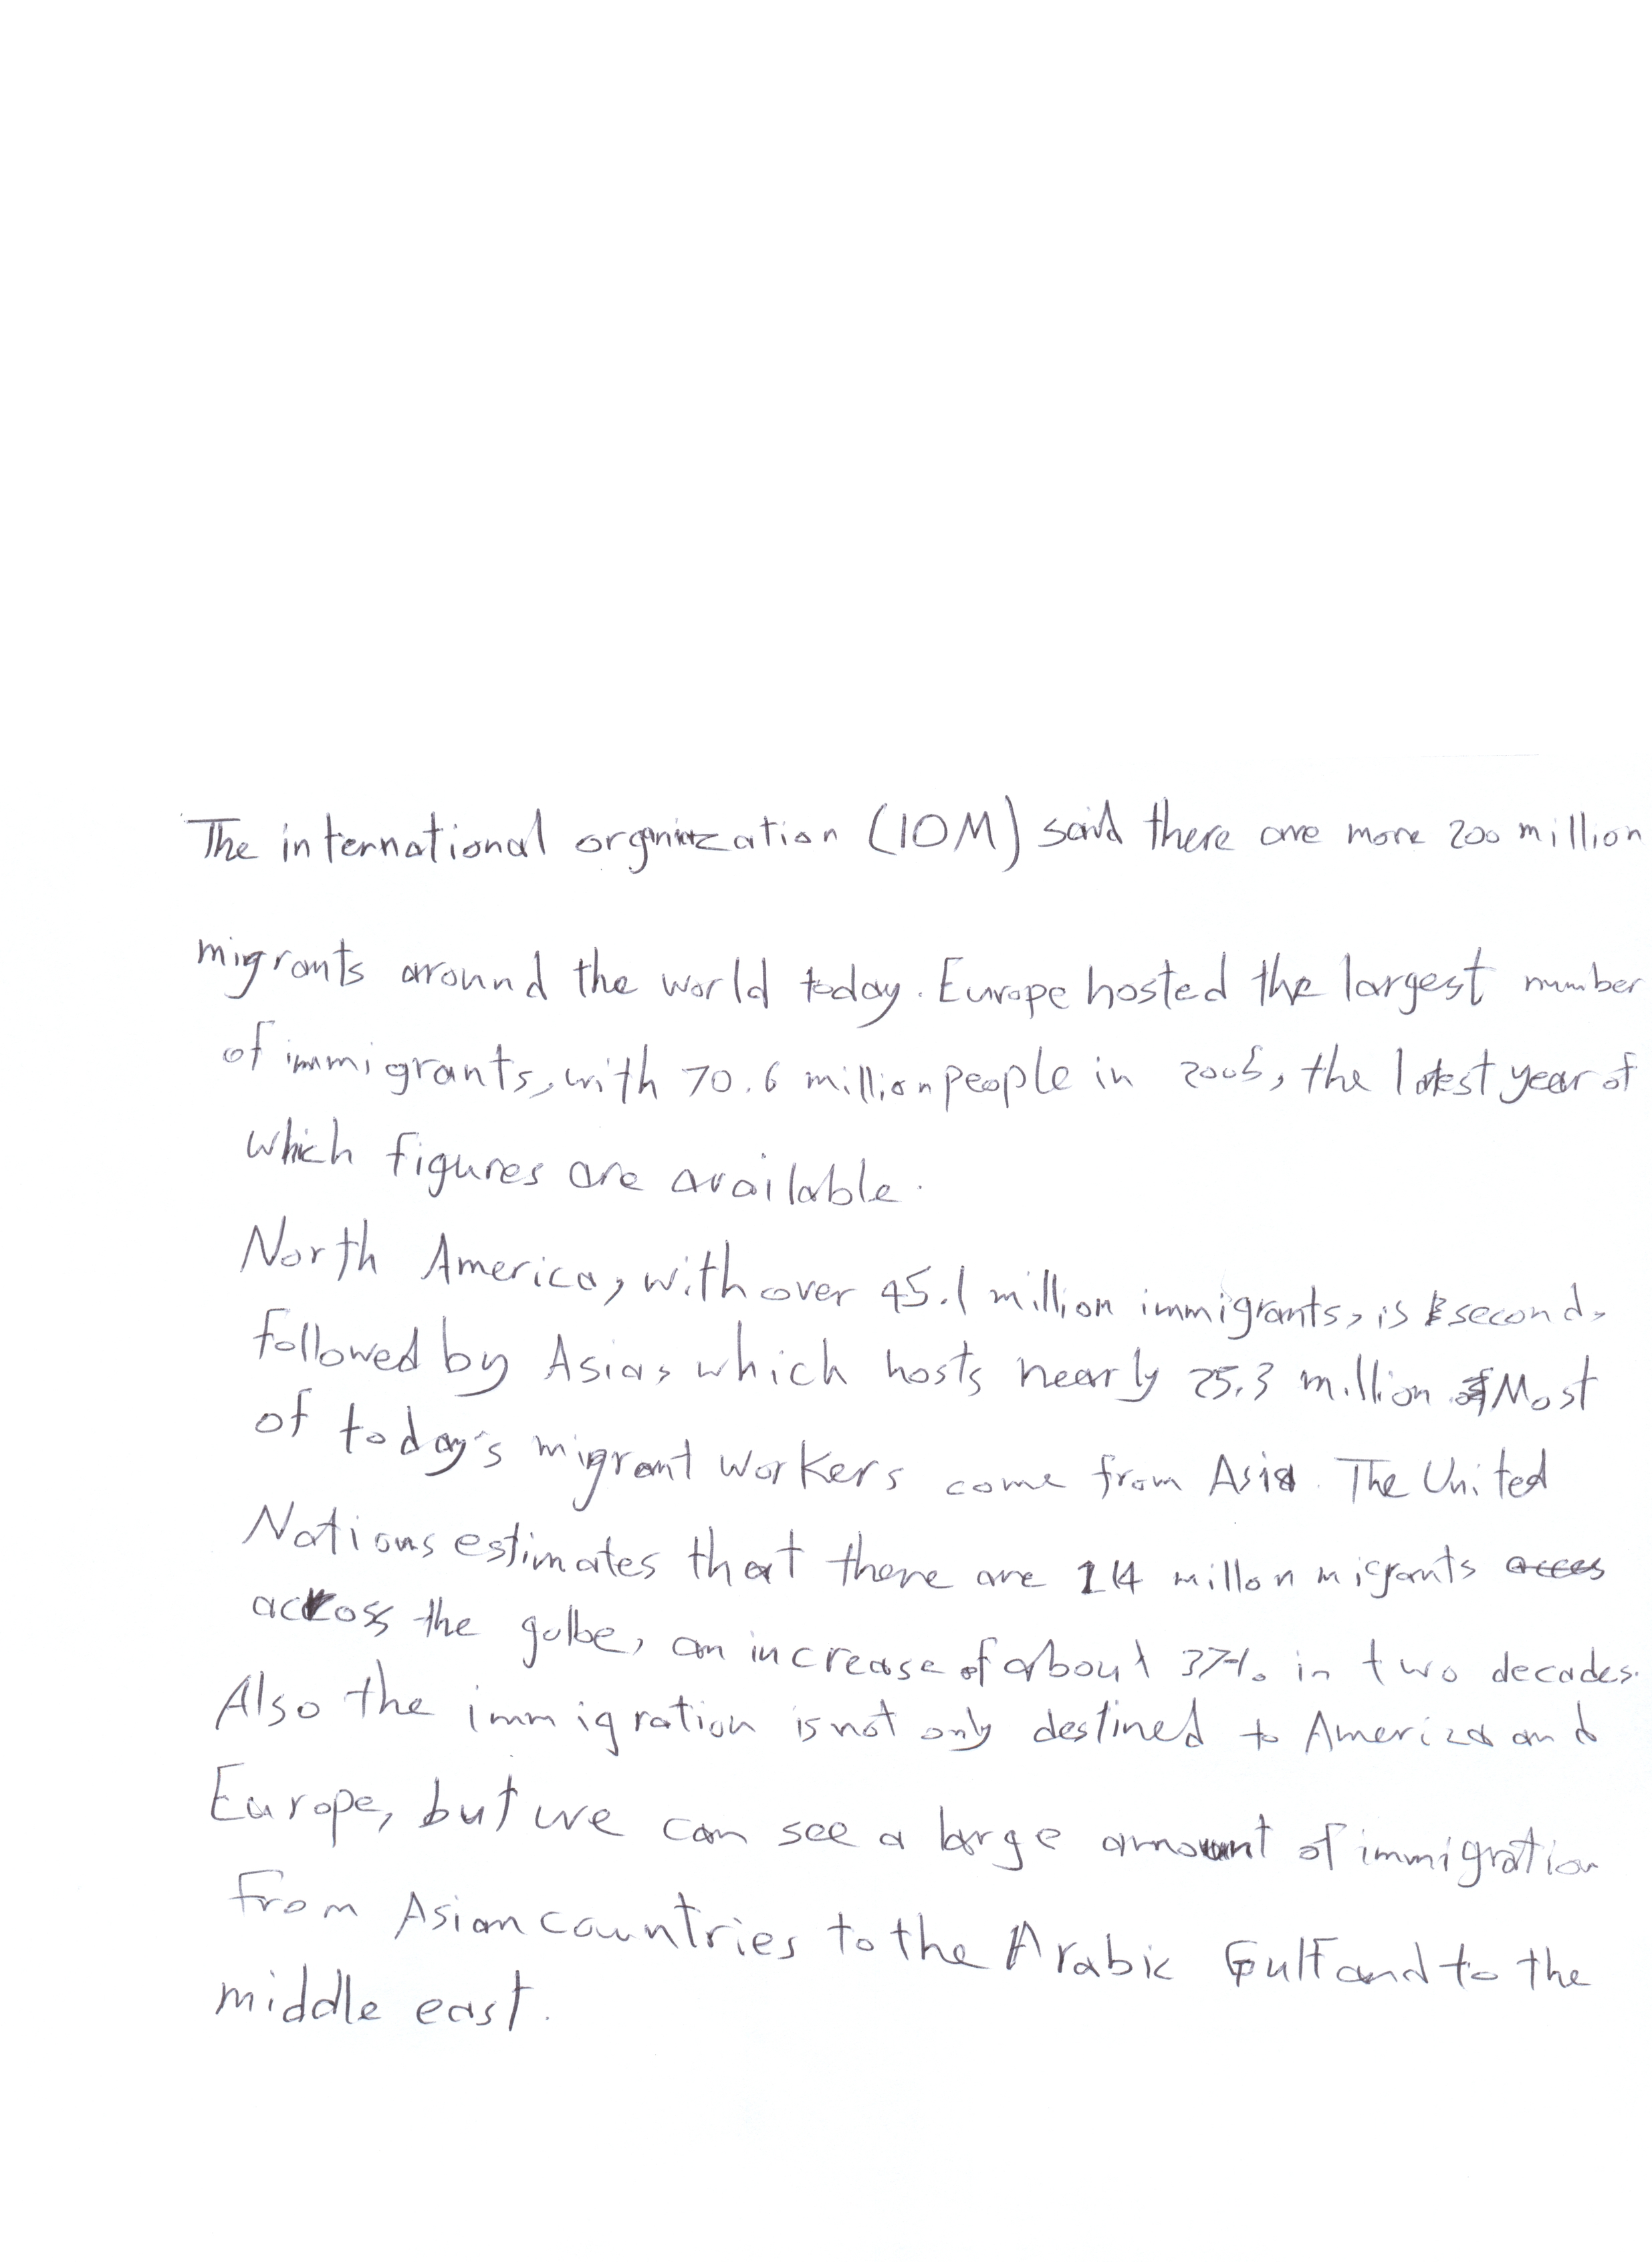 The international orgniazation (IOM) said there are more 200 million
migrants around the world today. Europe hosted the largest number
of immigrants, with 70.6 million people in 2005, the latest year of
which figures are available.
North America, with over 45.1 million immigrants, is second,
followed by Asia, which hosts nearly 25.3 million. Most
of today's migrant workers come from Asia. The United
Nations estimates that there are 214 millon migrants
across the gulbe, an increase of about 37% in two decades.
Also the immigration is not only destined to America and
Europe, but we can see a large amount of immigration
from Asian countries to the Arabic Gulf and to the
middle east.